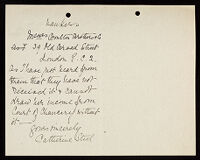 Lawyers
Messrs Coulton Brothers &
39 Old Broad Street
London E.C.2
as I have not heard from
them that they have not
received it & cannot
draw her income from
Court of Chancery without
it —
Yours sincerely
Catherine